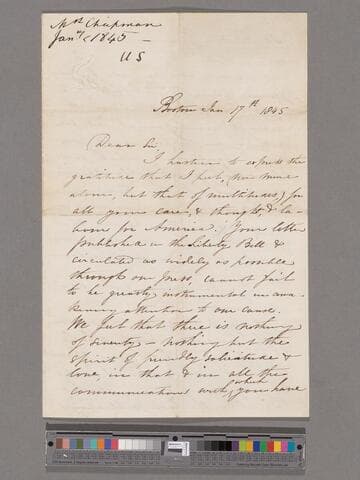 Mrs Chapman
Jany 1845 —
U S
Boston Jan 17th 1845
Dear Sir,
I hasten to express the
gratitude that I feel, (nor mine
alone, but that of multitudes,) for
all your cares, & thoughts, & la-
bors for America. Your letter
published in the Liberty Bell &
circulated as widely as possible
through our press, cannot fail
to be greatly instrumental in awa-
kening attention to our cause.
We felt that there is nothing
of severity, – nothing but the
spirit of friendly solicitude &
love, in that & in all the
communications with which you have